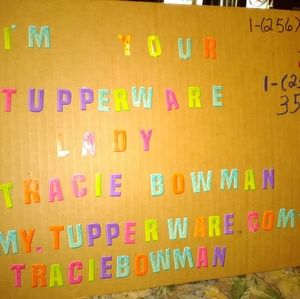 I'M YOUR
1-(256)
TUPPERWARE
LADY
TRACIE BOWMAN
MY.TUPPERWARE.COM
TRACIEBOWMAN